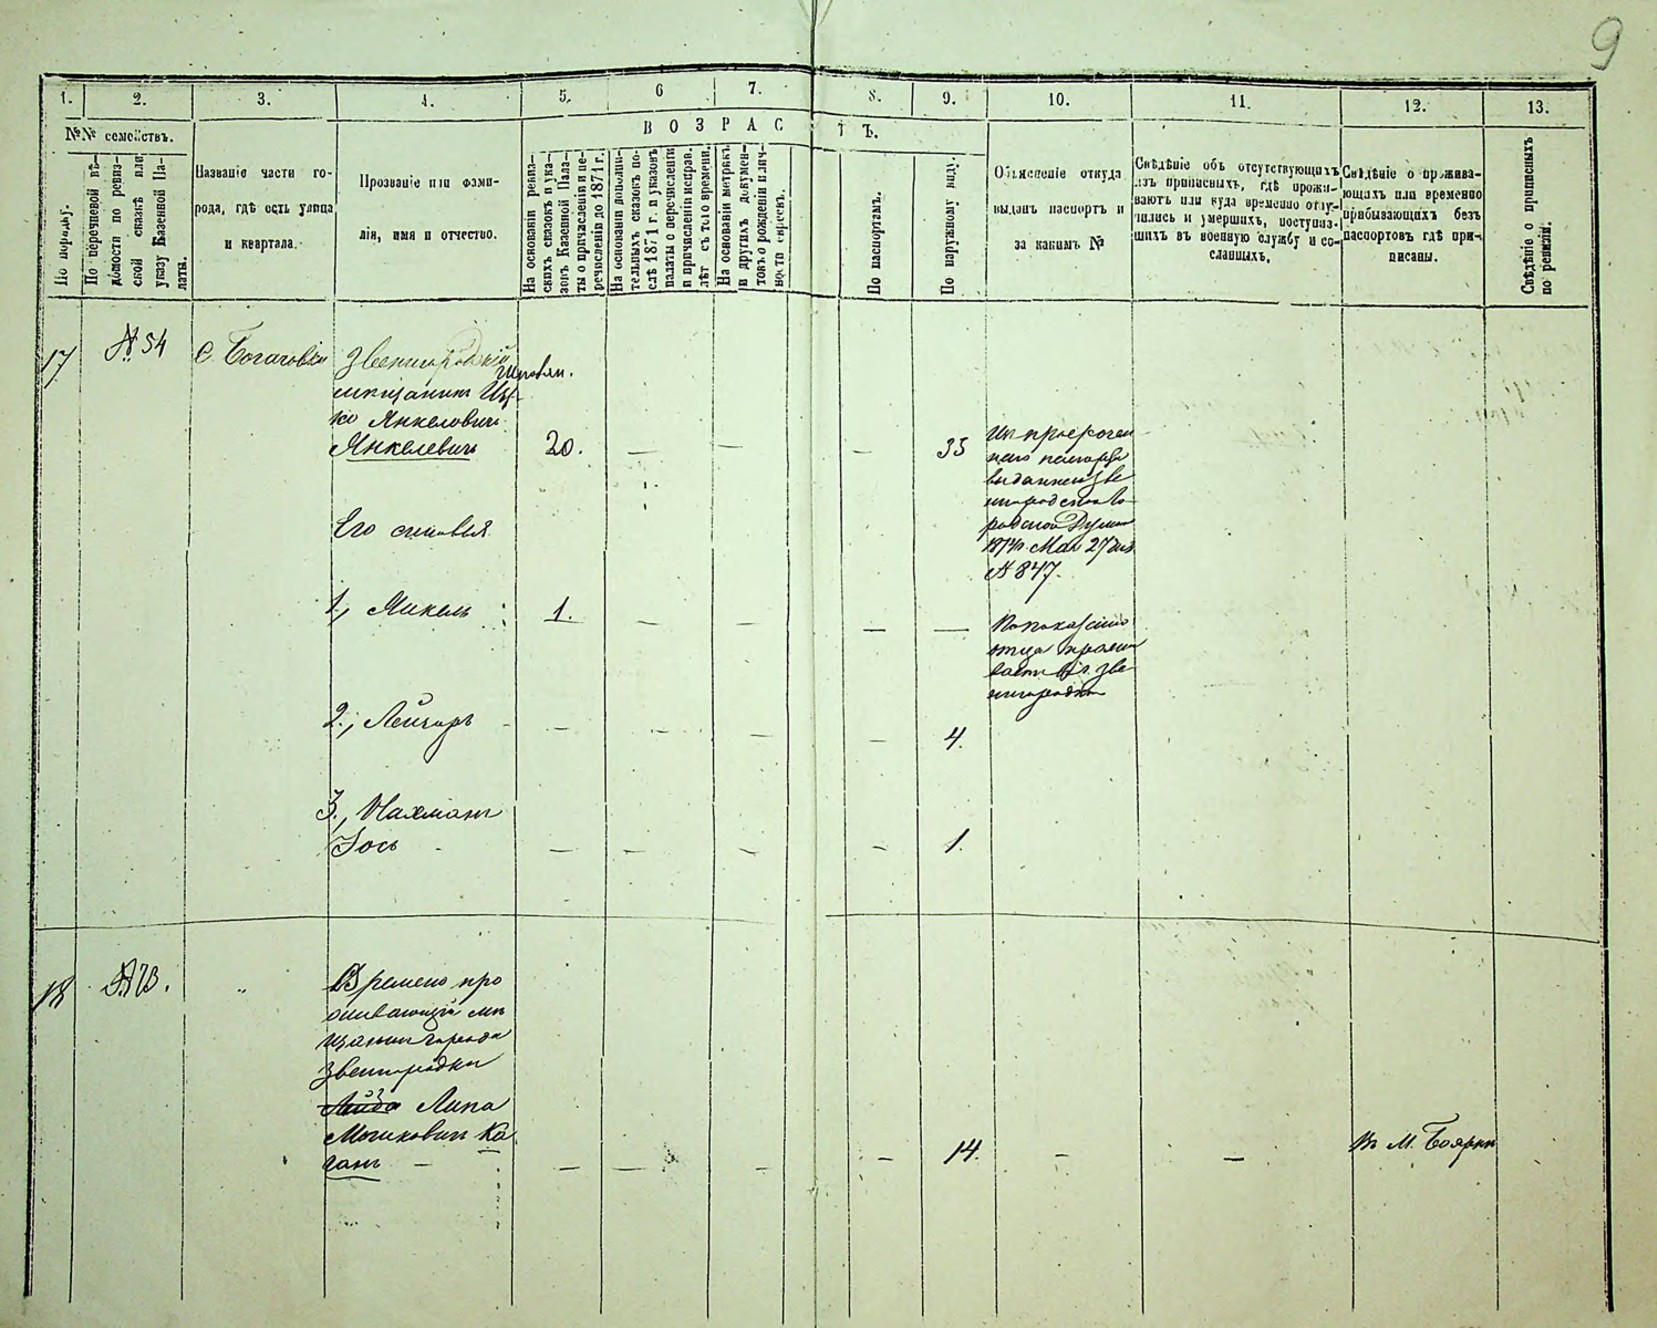 9
1. 2. 3. 4. 5. 6 7. 8. 9. 10. 11. 12. 13.
№№ семействъ.
В О З Р А С Т Ъ.
По порядку.
По перечневой вѣ-
домости по ревиз-
ской сказкѣ или
указу Казенной Па-
латы.
Названіе части го-
рода, гдѣ есть улица
и квартала.
Прозваніе или фами-
лія, имя и отчество.
На основаніи ревиз-
скихъ сказокъ и ука-
зовъ Казенной Пала-
ты о причисленіи и пе-
речисленіи до 1871 г.
На основаніи дополни-
тельныхъ сказокъ по-
слѣ 1871 г. и указовъ
палаты о перечисленіи
и причисленіи исправ.
лѣт съ того времени.
На основаніи метрикъ
и другихъ докумен-
товъ о рожденіи
евреевъ.
По паспортамъ.
По наружному виду.
Объясненіе откуда
выданъ паспортъ и
за какимъ №
Свѣдѣніе объ отсутствующихъ
изъ приписныхъ, гдѣ прожи-
ваютъ или куда временно отлу-
чились и умершихъ, поступив-
шихъ въ военную службу и со-
сланныхъ.
Свѣдѣніе о прожива-
ющихъ или временно
прибывающихъ безъ
паспортовъ гдѣ при-
писаны.
Свѣдѣніе о приписныхъ
по ревизіи.
17 № 54 С. Богачовки Звенигородскій
мѣщанинъ Иц-
ко Янкеловичъ
Янкелевичъ 20. — — — 35
Изъ просрочен
наго паспорта
выданнаго Зве
нигородской Го-
родской Думою
1874г. Мая 27 дня
№ 847.
Его сыновья
1., Янкель 1. — — — —
По показанію
отца прожи
ваетъ въ г. Зве
нигородкѣ
2., Лейзоръ — — — — 4.
3., Нахманъ
Іось — — — — 1.
18 „ Времено про
живающій мѣ
щанинъ города
Звенигородки
Лейза Липа
Мошковичъ Ка
ганъ — — — — — 14. — — въ М. Боярки